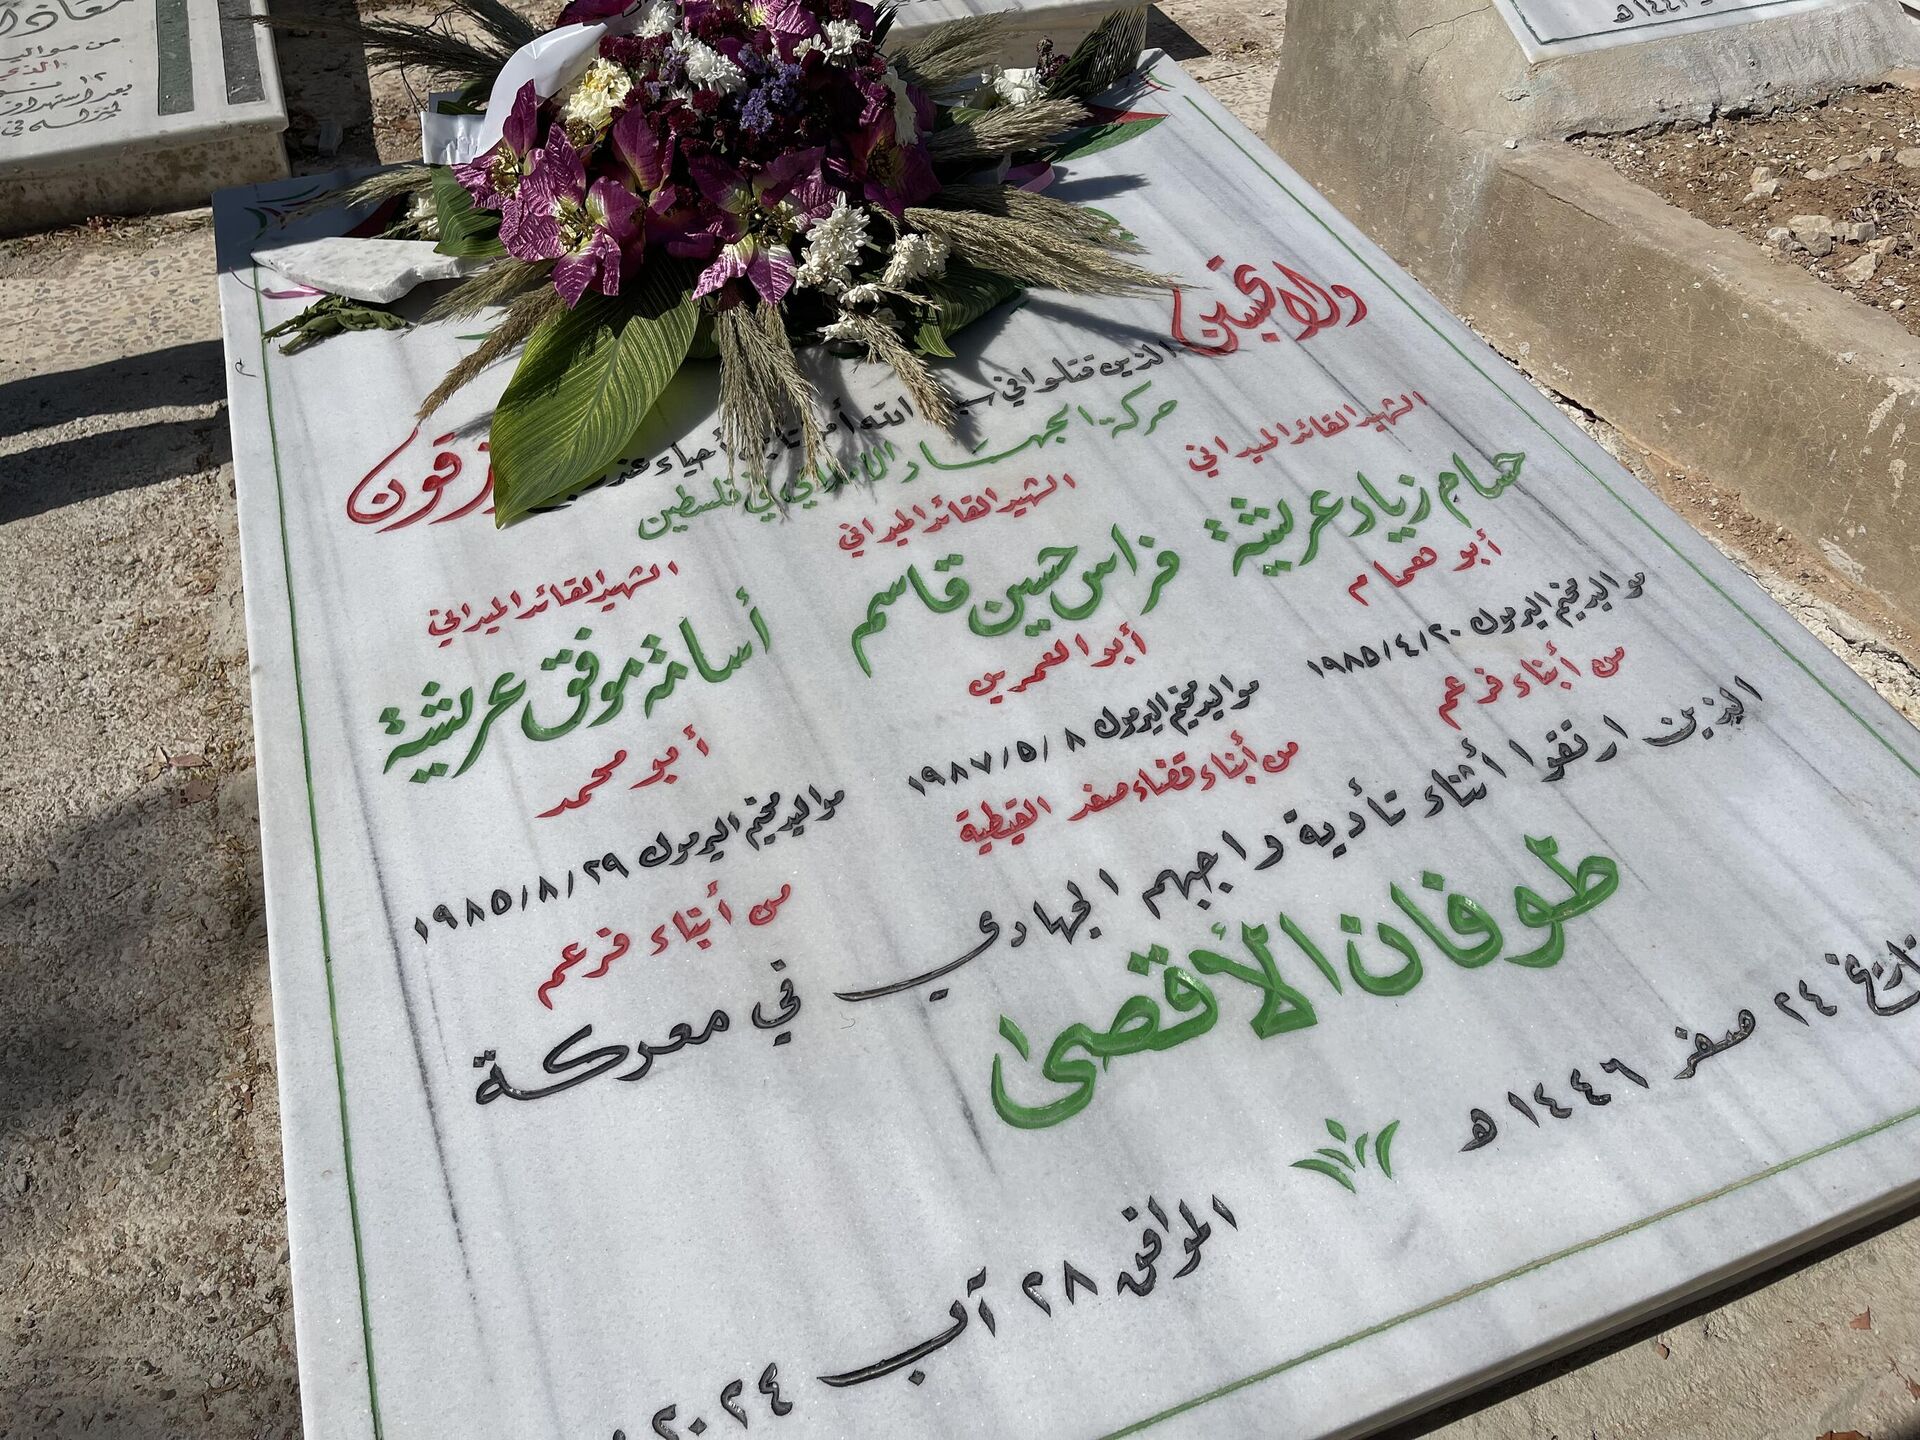 ولا تحسبن
الذين قتلوا في الله أحياء عند
يرزقون
حركة الجهاد الإسلامي في فلسطين
الشهيد القائد الميداني
حسام زياد عريشة
أبو همام
مواليد مخيم اليرموك ١٩٨٥/٤/٢٠
من أبناء فرعم
الشهيد القائد الميداني
فراس حسين قاسم
أبو العمرين
مواليد مخيم اليرموك ١٩٨٧/٥/٨
من أبناء قضاء صفد القيطية
الشهيد القائد الميداني
أسامة موفق عريشة
أبو محمد
مواليد مخيم اليرموك ١٩٨٥/٨/٢٩
من أبناء فرعم
الذين ارتقوا أثناء تأدية واجبهم الجهادي في معركة
طوفان الأقصى
بتاريخ ٢٤ صفر ١٤٤٦هـ
الموافق ٢٨ آب ٢٠٢٤
من مواليد
بعد استهداف
لمنزله في